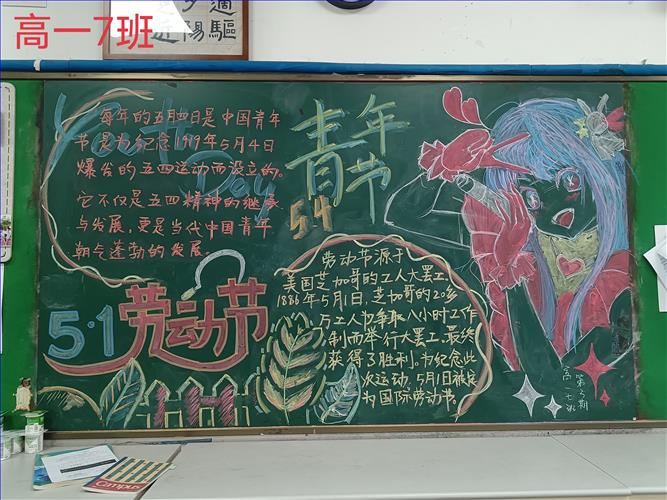 高一7班
遍
陽驅
Youth
Day
每年的五月四日是中国青年
节是为纪念1919年5月4日
爆发的五四运动而设立的。
它不仅是五四精神的继承
与发展,更是当代中国青年
朝气蓬勃的发展。
青年
节
54
5·1劳动节
劳动节源于
美国芝加哥的工人大罢工.
1886年5月1日,芝加哥的20多
万工人为争取八小时工作
制而举行大罢工,最终
获得了胜利.为纪念此
次运动,5月1日被定
为国际劳动节.
第3期
高一七班
Campus